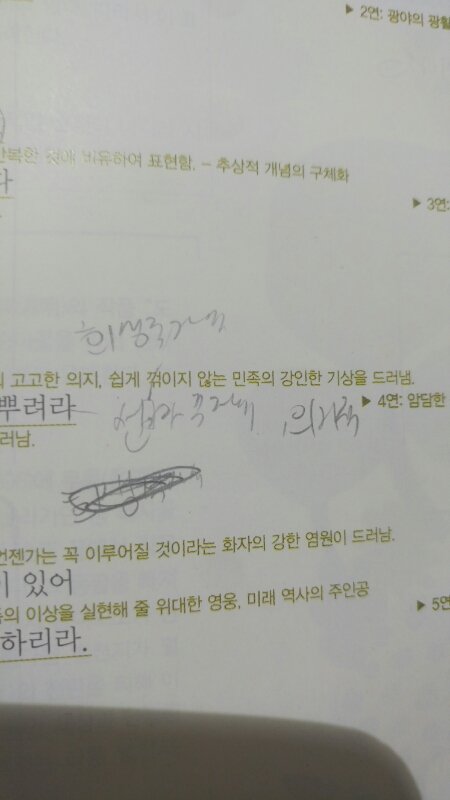 ▶ 2연: 광야의 광활
반복한 것에 비유하여 표현함. – 추상적 개념의 구체화
다
▶ 3연:
의 고고한 의지, 쉽게 꺾이지 않는 민족의 강인한 기상을 드러냄.
뿌려라
의지적
▶ 4연: 암담한
러남.
언젠가는 꼭 이루어질 것이라는 화자의 강한 염원이 드러남.
이 있어
의 이상을 실현해 줄 위대한 영웅, 미래 역사의 주인공
하리라.
▶ 5연